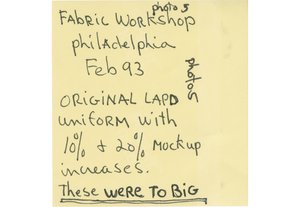 photo 5
FABRIC WORKSHOP
philadelphia
Feb 93
photos
ORIGINAL LAPD
uniform with
10% & 20% Mockup
increases.
These WERE TO BIG